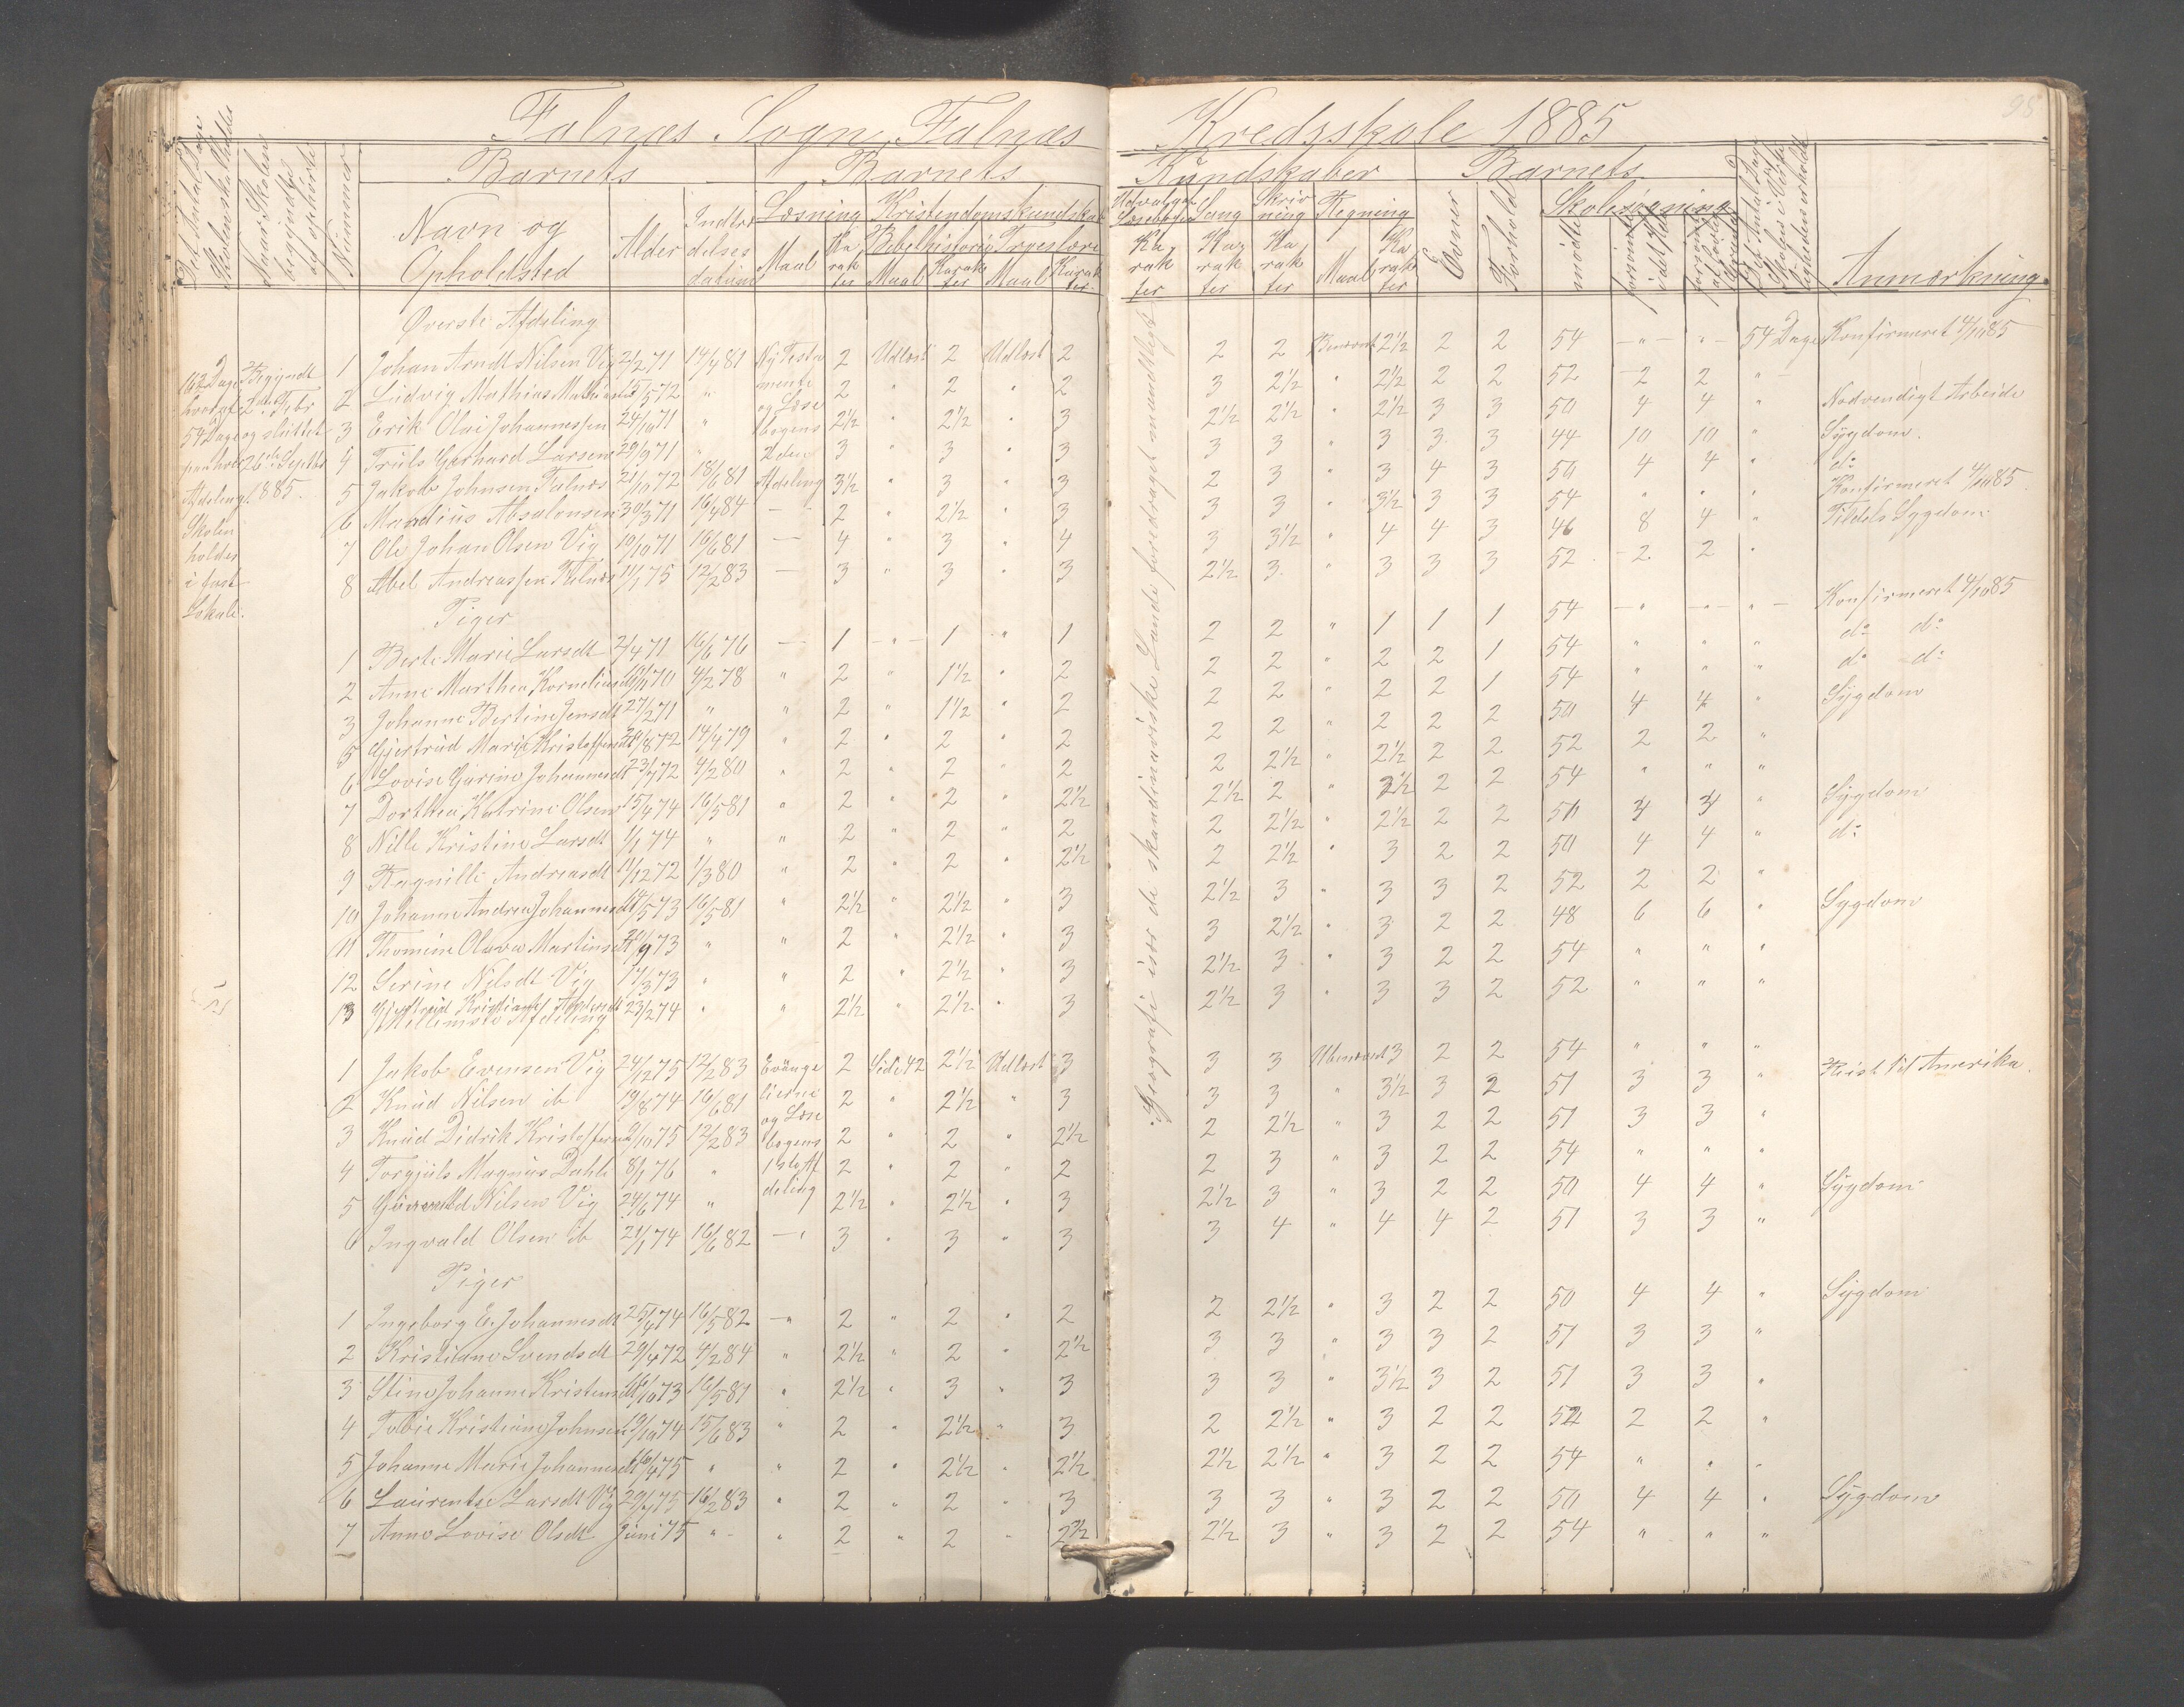 Falnæs Sogn Falnæs Kredsskole 1885
98
Det Antal Dage Skolen skal holdes
Naar Skolen begyndte og ophørte
Nummer
Barnets
Navn og Opholdsted
Alder
Indtrædelses datum
Barnets Kundskaber
Læsning
Maal
Karakter
Kristendomskundskab
Bibelhistorie
Maal
Karakter
Troeslære
Maal
Karakter
Udvalgte Læsebogen
Karakter
Sang
Karakter
Skrivning
Karakter
Regning
Maal
Karakter
Barnets
Evner
Forhold
Skolesøgning
mødte
forsømte i det Hele
forsømte af lovlig Grund
Det Antal Dage Skolen i Virkeligheden er holdt
Anmærkning.
162 Dage hvoraf 54 Dage paa hver Afdeling. Skolen holdes i fast Lokale.
Begyndt 2den Febr og sluttet 26de Septbr 1885.
Geografi især de skandinaviske Lande foredraget mundtligt
Øverste Afdeling
1 Johan Arndt Nilsen Vig 2/2 71 14/4 81 Ny Testamente og Læsebogens 2den Afdeling 2 Udlæst 2 Udlæst 2 2 2 Benævnt 2½ 2 2 54 - " - " - 54 Dage Konfirmeret 4/10 85
2 Ludvig Mathias Mathiasen 15/5 72 " 2 " 2 " 2 3 2½ " 2½ 2 2 52 2 2 "
3 Erik Olai Johannessen 24/10 71 " 2½ " 2½ " 3 2½ 2½ " 2½ 3 3 50 4 4 " Nødvendigt Arbeide
4 Truls Gerhard Larsen 29/9 71 " 3 " 3 " 3 3 3 " 3 3 3 44 10 10 " Sygdom.
5 Jakob Johnsen Falnæs 21/10 72 18/6 81 3½ " 3 " 3 2 3 " 3 4 3 50 4 4 " do
6 Mandius Absalonsen 30/3 71 16/4 84 - 2 " 2½ " 3 3 3 " 3½ 3 3 54 " " " Konfirmeret 4/10 85
7 Ole Johan Olsen Vig 10/10 71 16/6 81 - 4 " 3 " 4 3 3½ " 4 4 3 46 8 4 " Tildels Sygdom
8 Abel Andreassen Falnæs 11/1 75 12/2 83 - 3 " 3 " 3 2½ 3 " 3 3 3 52 2 2 "
Piger
1 Berte Marie Larsdt 2/4 71 16/6 76 - 1 - " - 1 " 1 2 2 " 1 1 1 54 - " - " - " - Konfirmeret 4/10 85
2 Anne Marthea Korneliusdt 19/11 70 4/2 78 " 2 " 1½ " 2 2 2 " 2 2 1 54 " " " do do
3 Johanne Bertine Jensdt 27/2 71 " " 2 " 1½ " 2 2 2 " 2 2 1 54 " " " do do
5 Gjertrud Marie Kristoffersdt 30/8 72 14/4 79 " 2 " 2 " 2 2 2 " 2 2 2 50 4 4 " Sygdom
6 Lovise Gurine Johannesdt 23/7 72 4/2 80 " 2 " 2 " 2 2 2½ " 2½ 2 2 52 2 2 "
7 Dorthea Katrine Olsen 15/4 74 16/5 81 " 2 " 2 " 2½ 2½ 2 " 2½ 2 2 54 " " "
8 Nille Kristine Larsdt 1/1 74 " " 2 " 2 " 2 2 2½ " 2½ 2 2 51 3 3 " Sygdom
9 Ragnille Andreasdt 11/12 72 1/3 80 " 2 " 2 " 2½ 2 2½ " 3 2 2 50 4 4 " do
10 Johanne Andrea Johannesdt 14/5 73 16/5 81 " 2½ " 2½ " 3 2½ 3 " 3 3 2 52 2 2 "
11 Thomine Olava Martinsdt 21/9 73 " " 2 " 2½ " 3 3 2½ " 3 2 2 48 6 6 " Sygdom
12 Serine Nilsdt Vig 17/3 73 " " 2 " 2½ " 3 2½ 3 " 3 2 2 54 " " "
13 Gjertrud Kristiane Andersdt 23/2 74 " " 2½ " 2½ " 3 2½ 3 " 3 3 2 52 " " "
Mellemste Afdeling
1 Jakob Evensen Vig 24/12 75 12/2 83 Evangelierne og Læsebogens 1ste Afdeling 2 Side 42 2½ Udlæst 3 3 3 Ubenævnt 3 2 2 54 " " "
2 Knud Nilsen ib 19/8 74 16/6 81 2 " 2½ " 3 3 3 " 3½ 3 2 51 3 3 " Reist til Amerika.
3 Knud Didrik Kristoffersen 9/10 75 12/2 83 2 " 2 " 2½ 2 2½ " 3 2 2 51 3 3 "
4 Torgjuls Magnus Dahle 8/1 76 " 2 " 2 " 2 2 3 " 3 2 2 54 " " "
5 Gunvald Nilsen Vig 24/6 74 " 2½ " 2½ " 3 2½ 3 " 3 2 2 50 4 4 " Sygdom
6 Ingvald Olsen ib 21/1 74 16/6 82 - " 3 " 3 " 3 3 4 " 4 4 2 51 3 3 "
Piger
1 Ingeborg E. Johannesdt 25/4 74 16/5 82 - " 2 " 2 " 2 2 2½ " 3 2 2 50 4 4 " Sygdom
2 Kristiane Svendsdt 29/4 72 4/2 84 " 2½ " 2 " 2½ 3 3 " 3 3 2 51 3 3 "
3 Stine Johanne Kristensdt 16/10 73 16/5 81 " 2½ " 3 " 3 3 3 " 3½ 3 2 51 3 3 "
4 Tobie Kristiane Johnsen 19/10 74 15/6 83 " 2 " 2½ " 3 2 2½ " 3 2 2 52 2 2 "
5 Johanne Marie Johannesdt 16/4 75 " " 2 " 2½ " 2½ 2½ 2½ " 3 2 2 54 " " "
6 Laurentse Larsdt Vig 29/7 75 16/2 83 " 2 " 2 " 3 3 3 " 3 2 2 50 4 4 " Sygdom
7 Anne Lovise Olsdt Juni 75 " " 2 " 2 " 2½ 2½ 3 " 3 2 2 54 " " "